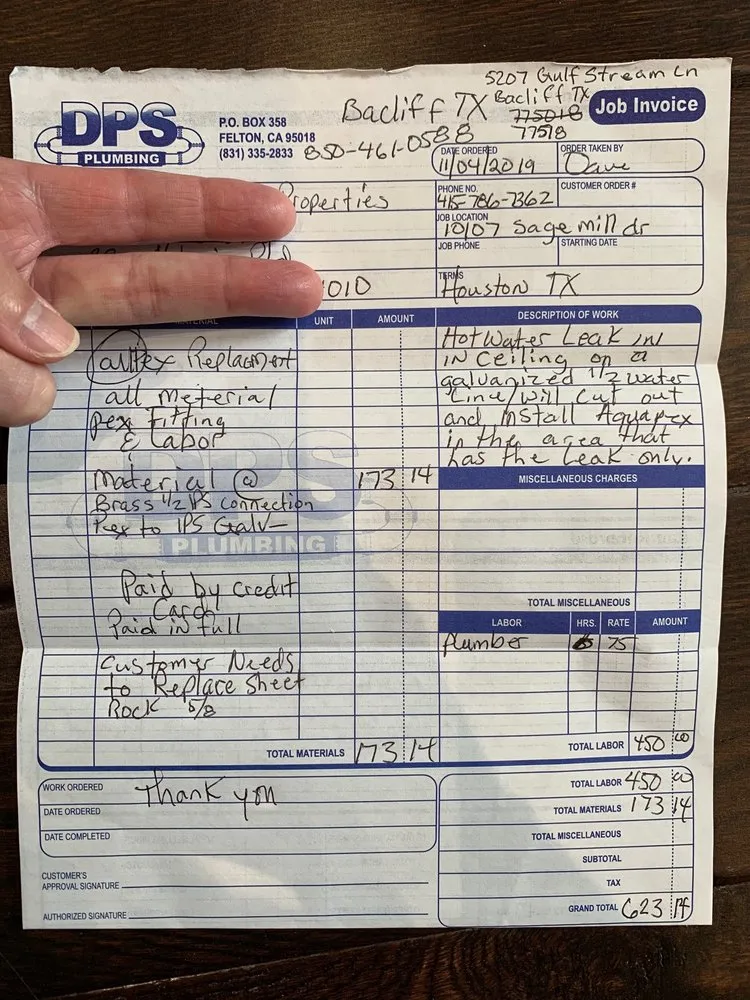 5207 Gulf Stream Ln
Bacliff TX
Bacliff TX
775018
77518
Job Invoice
DPS
PLUMBING
P.O. BOX 358
FELTON, CA 95018
(831) 335-2833
850-461-0588
DATE ORDERED
11/04/2019
ORDER TAKEN BY
Dave
Properties
PHONE NO.
415-786-7362
CUSTOMER ORDER #
JOB LOCATION
10107 Sage mill dr
JOB PHONE
STARTING DATE
1010
TERMS
Houston TX
MATERIAL
UNIT
AMOUNT
DESCRIPTION OF WORK
Replacment
all meterial
pex Fitting
& Labor
Material @ 173 14
Brass 1/2 IPS connection
Pex to IPS Galv
Paid by credit
Card
Paid in full
Customer Needs
to Replace Sheet
Rock 5/8
TOTAL MATERIALS 173 14
Hot Water Leak in
in Ceiling on a
galvanized 1/2 water
Line/will cut out
and install Aquapex
in the area that
has the Leak only.
MISCELLANEOUS CHARGES
TOTAL MISCELLANEOUS
LABOR HRS. RATE AMOUNT
plumber 6 75
TOTAL LABOR 450 00
DPS
PLUMBING
WORK ORDERED
Thank you
DATE ORDERED
DATE COMPLETED
CUSTOMER'S
APPROVAL SIGNATURE
AUTHORIZED SIGNATURE
TOTAL LABOR 450 00
TOTAL MATERIALS 173 14
TOTAL MISCELLANEOUS
SUBTOTAL
TAX
GRAND TOTAL 623 14